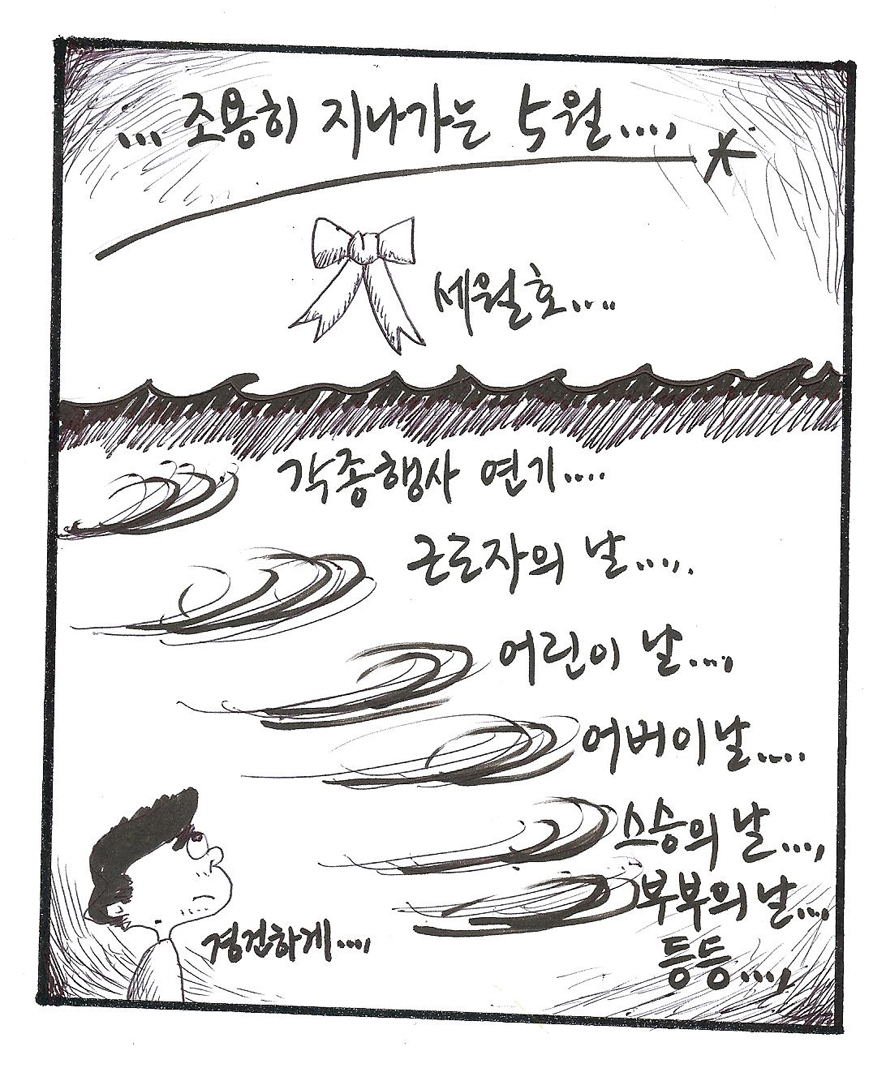 ... 조용히 지나가는 5월....,
세월호....
각종행사 연기....
근로자의 날.....
어린이 날...,
어버이날....
스승의 날...,
부부의 날...,
등등...,
경건하게...,